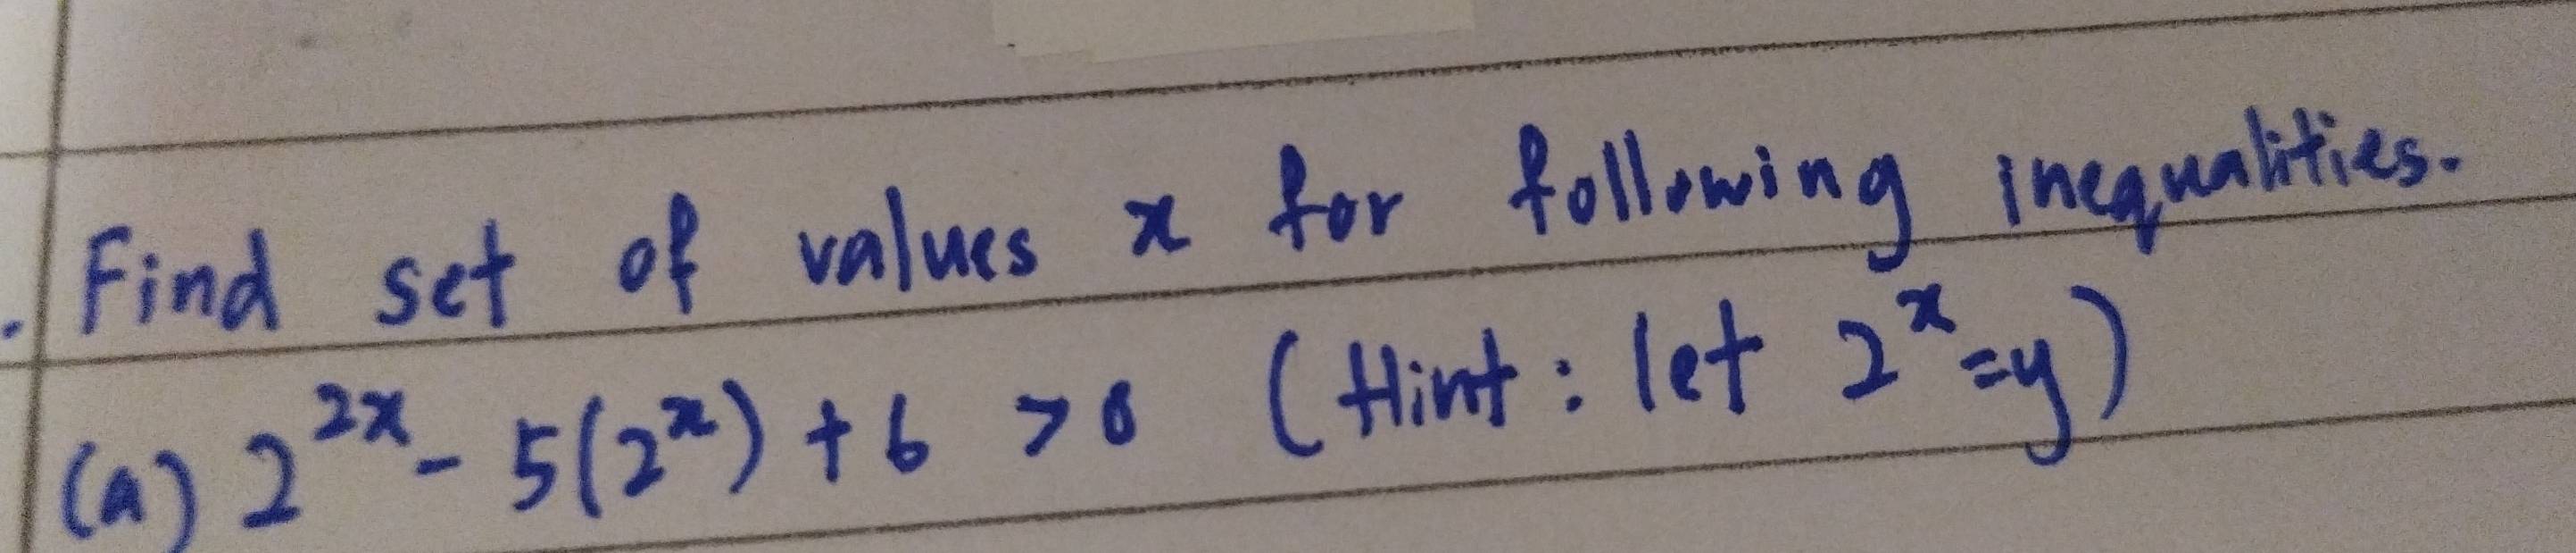 . Find set of values x for following inequalities.
(a) 2²ˣ - 5(2ˣ) + 6 > 0 (Hint : let 2ˣ = y)